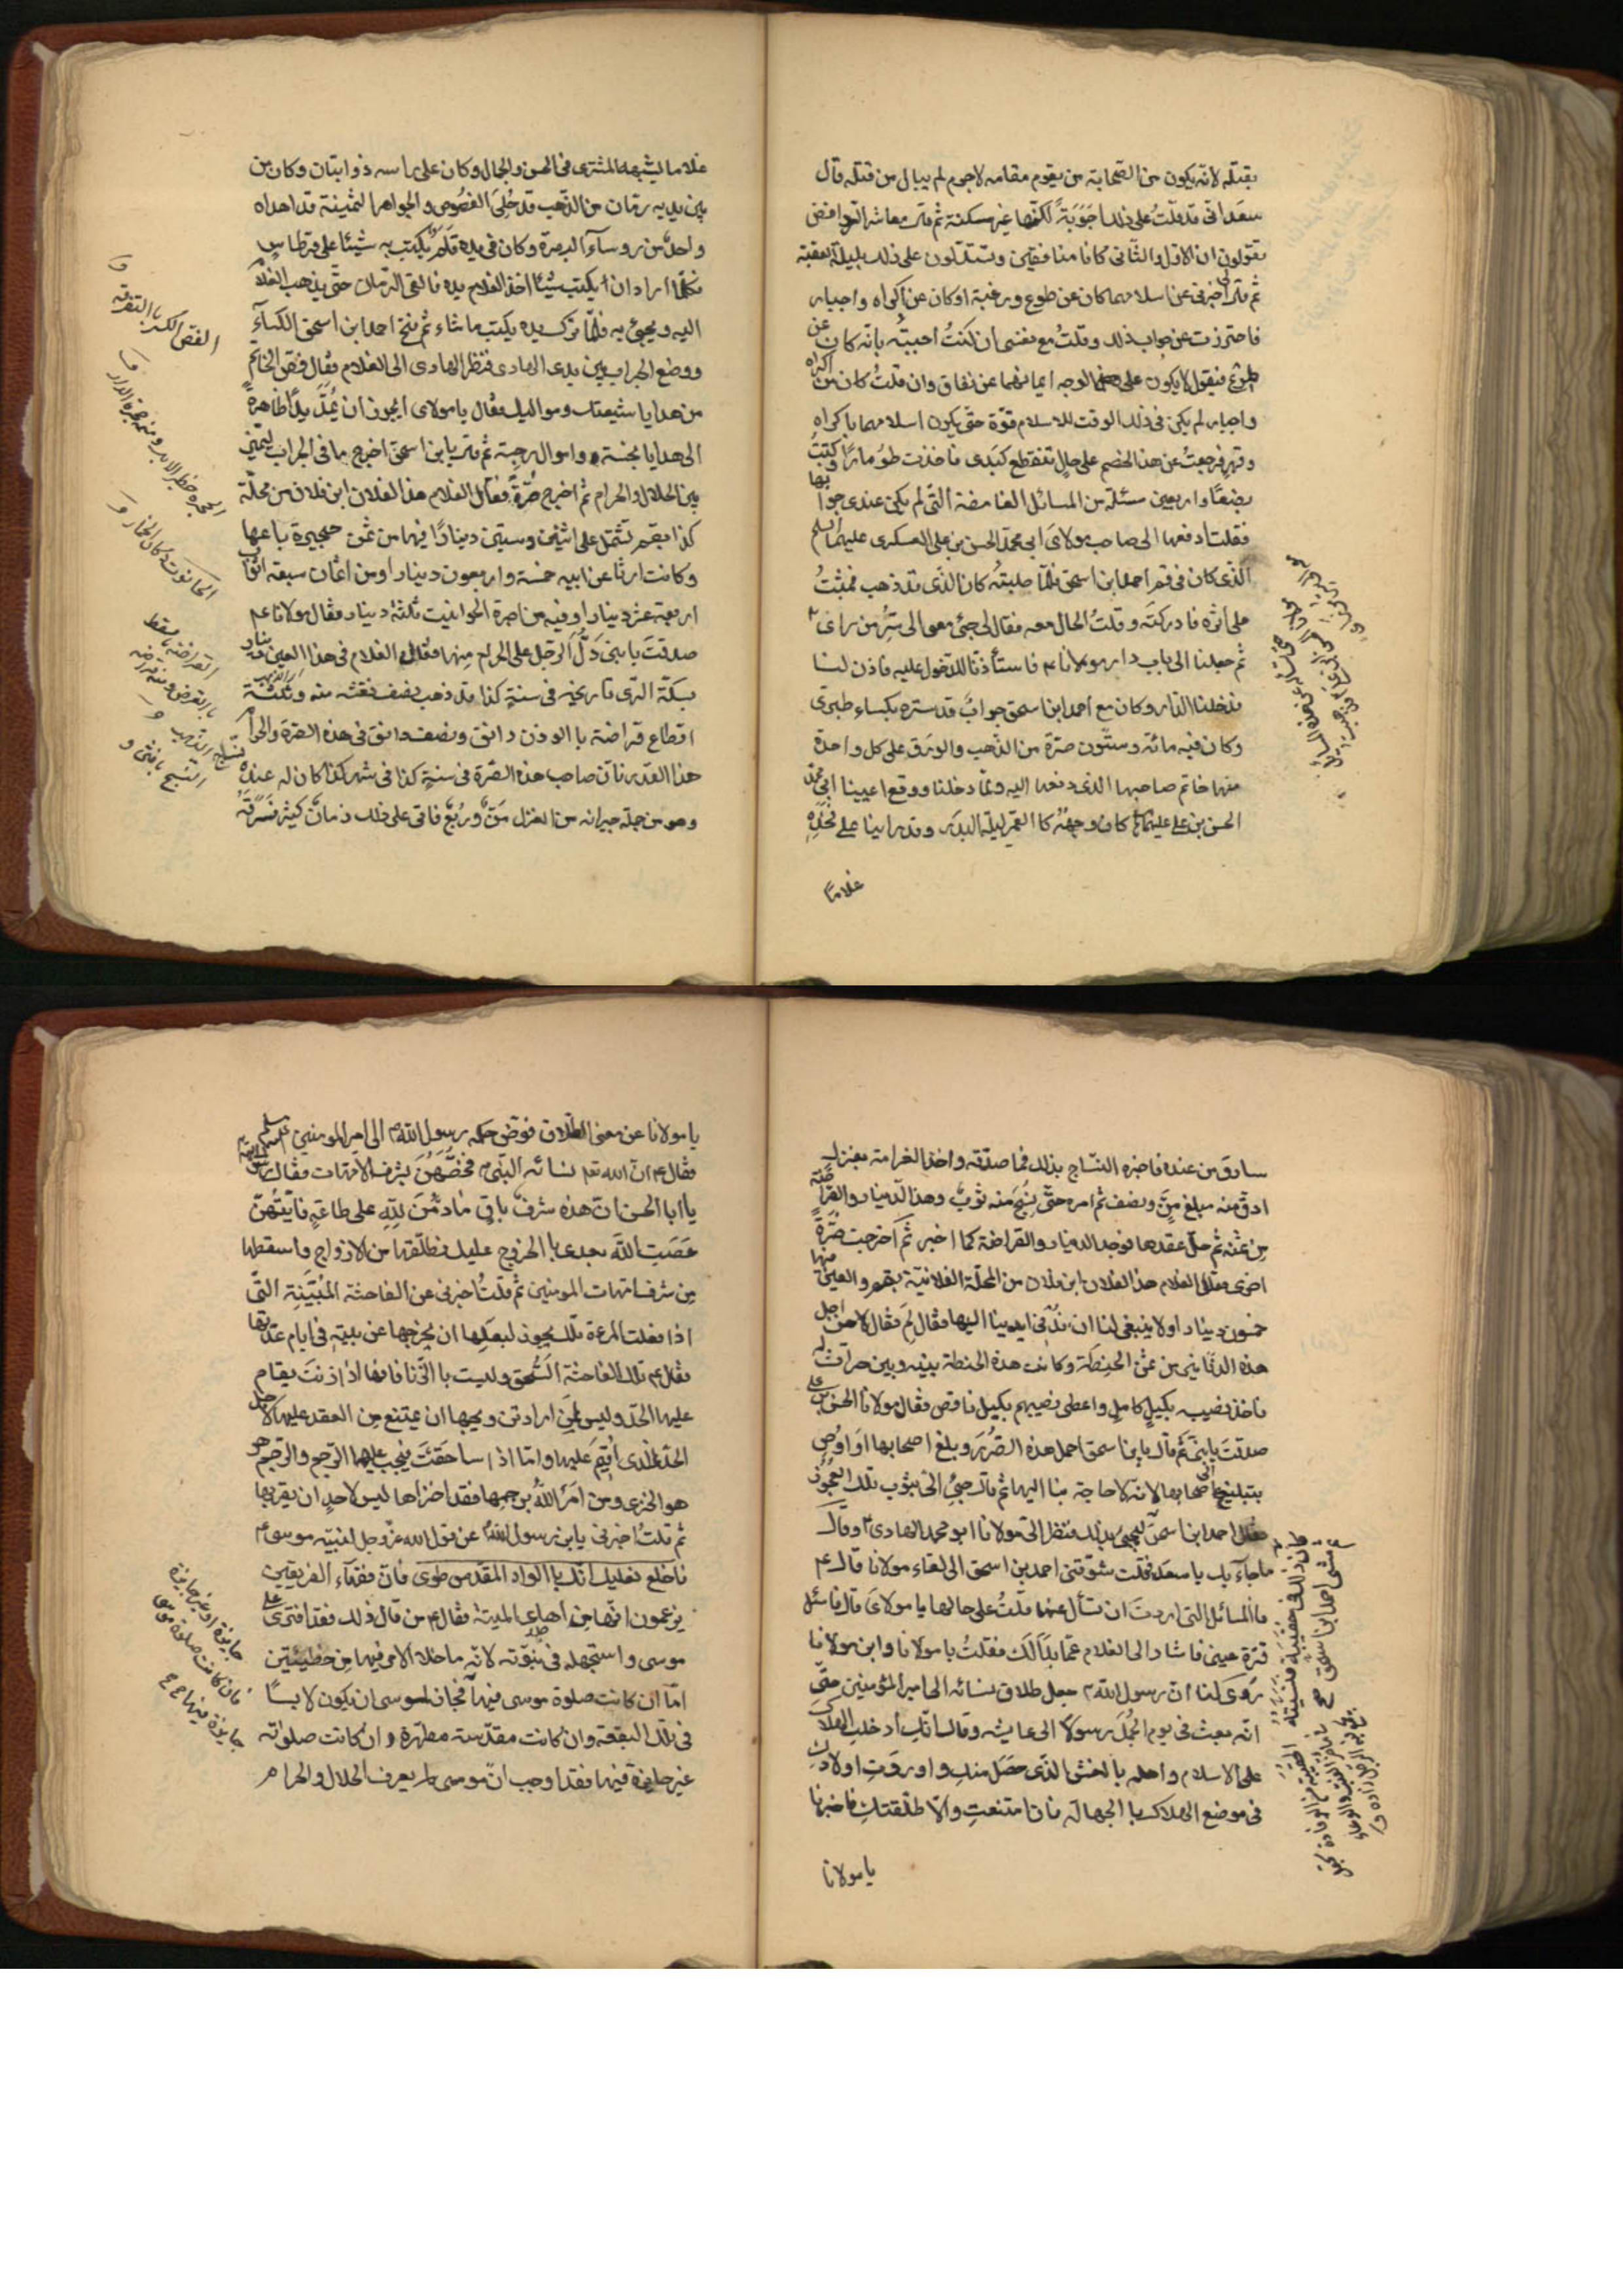 بقتله لانه يكون من الصحابة من يقوم مقامه لاجرم لم يبال من قتله قال
سعد انى قد قلتُ على ذلك اجوبةً لكنها غير مسكتة ثم قال معاشر الروافض
تقولون ان الاول والثانى كانا منافقين وتستدلون على ذلك بليلة العقبة
ثم قال لى اخبرنى عن اسلامهما كان عن طوع ورغبة او كان عن اكراه واجبار
فاحترزت عن جواب ذلك وقلتُ مع نفسى ان كنتُ اجبتُه بانه كان عن
طوع فيقول لا يكون على هذا الوجه ايمانهما عن نفاق وان قلتُ كان من اكراه
واجبار لم يكن فى ذلك الوقت للاسلام قوّة حتى يكون اسلامهما باكراه
وقهر فرجعتُ عن هذا الخصم على حالٍ تنقطع كبدى فاخذت طومارًا وكتبتُ
بضعًا واربعين مسئلة من المسائل الغامضة التى لم يكن عندى جوابها
فقلت ادفعها الى صاحب مولاى ابى محمد الحسن بن على العسكرى عليهما السلم
الذى كان فى قم احمد ابن اسحق فلمّا طلبتُه كان الذى قد ذهب فمشيتُ
على اثره فادركته وقلتُ الحال معه فقال لى جئ معى الى سُرّ من راى
ثم جعلنا الى باب دار مولانا ع م فاستأذنا للدخول عليه فاذن لنا
فدخلنا الدار وكان مع احمد ابن اسحق جرابٌ قد ستره بكساء طبرى
وكان فيه مائة وستّون صرّة من الذهب والورق على كل واحدة
منها خاتم صاحبها الذى دفعها اليه ولمّا دخلنا ووقع اعيننا ابى محمد
الحسن بن على عليهما كان وجهُه كا القمر ليلة البدر وقد راينا على فخذه
غلامًا
غلاما يشبه المشترى فى الحسن والجمال وكان على راسه ذوابتان وكان من
بين يديه رمّان من الذهب قد حُلِىَ الفصوص والجواهر الثمينة قد اهداه
واحدٌ من روسآء البصرة وكان فى يده قلمٌ يكتب به شيئا على قرطاس
فكلما اراد ان يكتب شيئا اخذ الغلام يده فالقى الرمان حتى يذهب الغلام
اليه ويجئ به فلمّا ترك يده يكتب ما شاء ثم فتح احمد ابن اسحق الكسآء
ووضع الجراب بين يدى الهادى فنظر الهادى الى الغلام فقال فضّ الخاتم
من هدايا شيعتك ومواليك فقال يا مولاى ايجوز ان يُمدّ يدًا طاهرةً
الى هدايا نجسة واموال رجسة ثم قال يا بن اسحق اخرج ما فى الجراب ليميز
بين الحلال والحرام ثم اخرج صُرّةً فقال الغلام هذا لفلان ابن فلان من محلة
كذا بقم تشتمل على اثنين وستين دينارًا فيها من ثمن حجيرة باعها
وكانت ارثًا عن ابيه خمسة واربعون دينارا ومن اثمان سبعه اثواب
اربعة عشر دينارا وفيه من اجرة الحوانيت ثلثة دينار فقال مولانا ع م
صدقتَ يا بنى دَلّ الرجل على الحرام منها فقال الغلام فى هذا العين دينار
بسكّة الرى تاريخه فى سنةٍ كذا قد ذهب نصف نقشه منه وثلثة
اقطاع قراضة با الوزن دانق ونصف دانق فى هذه الصرة والحرام
هذا القدر فان صاحب هذه الصرّة فى سنةٍ كذا فى شهر كذا كان له عنده نسّاج
وهو من جملة جيرانه من الغزل مَنٌّ ورُبُعٌ فاتى على ذلك زمانٌ كثير فسَرَقَهُ
القراضة ما سقط
با القرض ومنه قراضة
الذهب
سارق من عنده فاخبره النسّاج بذلك فما صدّقه واخذ الغرامة بغزل
ادقّ منه مبلغ مَنٍّ ونصف ثم امره حتى نُسِجَ منه ثوبٌ وهذا الدينار والقراضة
من ثمنه ثم حلّ عقدها فوجد الدينار والقراضة كما اخبر ثم اخرجت صُرّةً
اخرى فقال الغلام هذا لفلان ابن فلان من المحلّة الفلانيّة بقم والعين منها
خمسون دينارا ولا ينبغى لنا ان ندنى ايدينا اليها فقال لِمَ فقال لاجل
هذه الدنانير من ثمن الحنطة وكانت هذه الحنطة بينه وبين حراث له
فاخذ نصيبه بكيلٍ كاملٍ واعطى نصيبهم بكيل ناقص فقال مولانا الحسن بن على
صدقتَ يا بنىّ ثم قال يا بن اسحق احمل هذه الصُرَر وبلغ اصحابها او اوصِ
بتبليغها الى اصحابها لانه لا حاجة بنا اليها ثم قال جئ الىّ بثوب تلك العجوز
فقال احمد ابن اسحق ليجئ بذلك فنظر الىّ مولانا ابو محمد الهادى ع وقال
ما جآء بك يا سعد فقلت شوّقنى احمد بن اسحق الى لقاء مولانا قال ع م
فالمسائل التى اردتَ ان تسأل عنها قلتُ على حالها يا مولاى قال فاسئل
قرّة عينى فاشار الى الغلام عمّا بدا لك فقلتُ يا مولانا وابن مولانا
رَوى لنا انّ رسول الله ص جعل طلاق نسائه الى امير المؤمنين حتى
انّه بعث فى يوم الجمل رسولًا الى عايشه وقال انك ادخلت الهلاك
على الاسلام واهله بالغش الذى حصل منك واوردتِ اولادك
فى موضع الهلاك با الجهالة فان امتنعتِ والّا طلقتكِ فاخبرنا
يا مولانا
يا مولانا عن معنى الطلاق فوّض حكمه رسول الله ص الى امير المومنين عليه السلم
فقال ع م انّ الله تعا نسائه النبى ص فخصّهنّ بشرف الامّهات فقال رسول الله
يا ابا الحسن انّ هذه شرفٌ باقٍ ما دُمْنَ لِلّهِ على طاعةٍ فايّتُهنّ
عصَت الله بعدى با الخروج عليك فطلّقها من الازواج واسقطها
من شرف امّهات المومنين ثم قلتُ اخبرنى عن الفاحشة المبيّنة التى
اذا فعلت المرءة تلك يجوز لبعلها ان يخرجها عن بيته فى ايام عدتها
فقال ع م تلك الفاحشة السُّحق وليست با الزّنا فانها اذا زنت يقام
عليها الحدّ وليس لمن ارادَ تزويجها ان يمتنع من العقد عليها لاجل
الحدّ الذى اُقيم عليها وامّا اذا ساحَقَتْ فيجب عليها الرّجم والرّجم هو
هو الخزى ومن امَرَ اللهُ برجمها فقد اخزاها ليس لاحدٍ ان يقربها
ثم قلتُ اخبرنى يا بن رسول الله عن قول الله عزّ وجل لنبيّه موسى ع م
فاخلع نعليك انّك با الواد المقدس طوى فان فقهآء الفريقين
يزعمون انّها من اهاب الميتة فقال ع م من قال ذلك فقد افترى على
موسى واستجهله فى نبوّته لانه ما خلا الامر فيها من خطيئتين
امّا ان كانت صلوة موسى فيها فجاز لموسى ان يكون لابسًا
فى تلك البقعة وان كانت مقدّسة مطهرة وان كانت صلواته
غير جايزة فيها فقد اوجب انّ موسى لم يعرف الحلال والحرام
جايزة او غير جايزة
فان كانت صلوة موسى
جايزة فيها ع ع